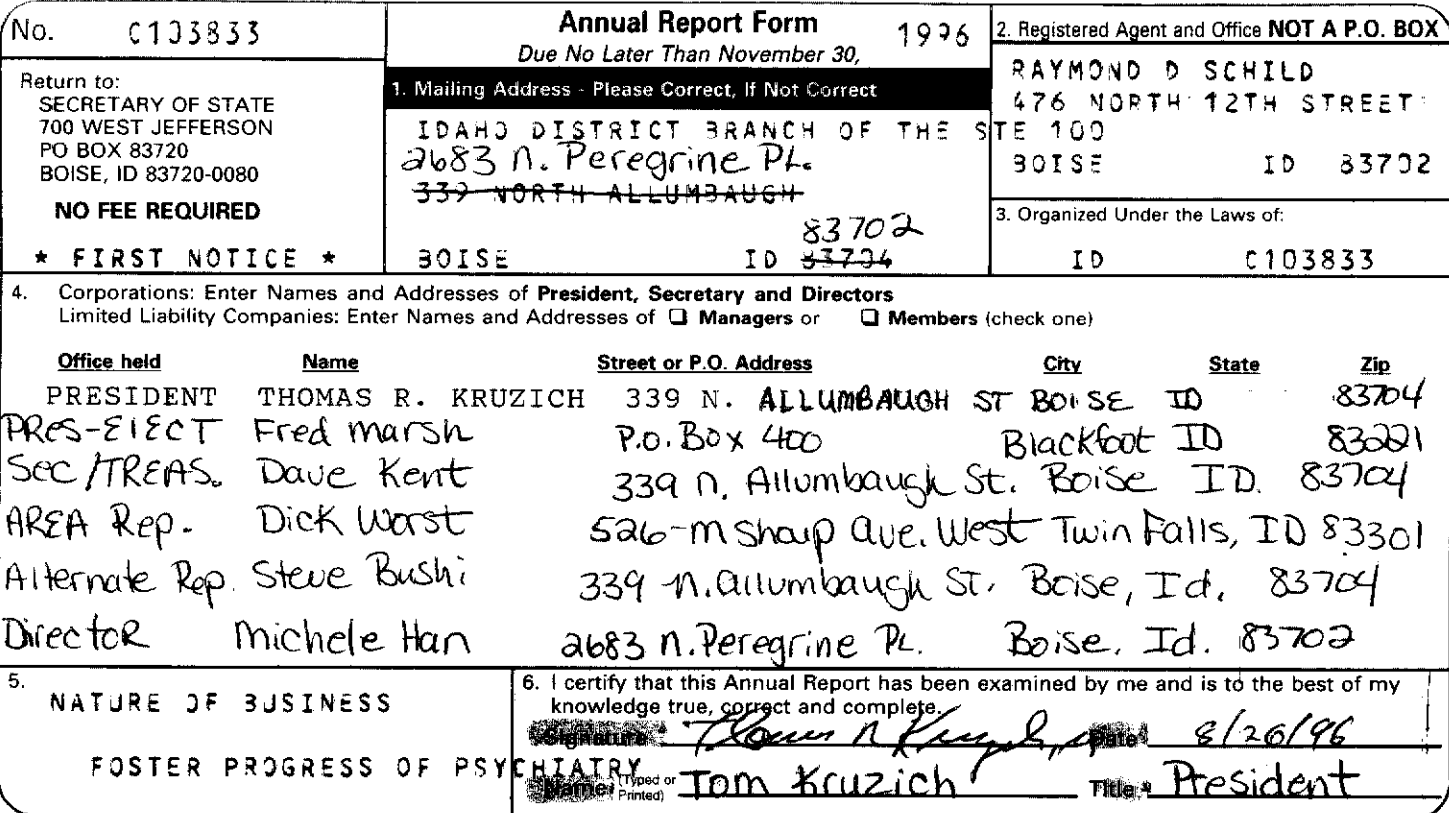 No. C103833
Annual Report Form 1996
Due No Later Than November 30,
Return to:
SECRETARY OF STATE
700 WEST JEFFERSON
PO BOX 83720
BOISE, ID 83720-0080
NO FEE REQUIRED
* FIRST NOTICE *
1. Mailing Address - Please Correct, If Not Correct
IDAHO DISTRICT BRANCH OF THE
2683 N. Peregrine PL.
339 NORTH ALLUMBAUGH
83702
BOISE ID 83704
2. Registered Agent and Office NOT A P.O. BOX
RAYMOND D SCHILD
476 NORTH 12TH STREET
STE 100
BOISE ID 83702
3. Organized Under the Laws of:
ID C103833
4. Corporations: Enter Names and Addresses of President, Secretary and Directors
Limited Liability Companies: Enter Names and Addresses of ❑ Managers or ❑ Members (check one)
Office held Name Street or P.O. Address City State Zip
PRESIDENT THOMAS R. KRUZICH 339 N. ALLUMBAUGH ST BOISE ID 83704
PRES-ElECT Fred Marsh P.O. Box 400 Blackfoot ID 83221
Sec/TREAS. Dave Kent 339 N. Allumbaugh St. Boise ID. 83704
AREA Rep. Dick Worst 526-M Shoup Ave. West Twin Falls, ID 83301
Alternate Rep. Steve Bushi 339 N. Allumbaugh ST. Boise, Id. 83704
DirectoR Michele Han 2683 N. Peregrine PL. Boise, Id. 83702
5. NATURE OF BUSINESS
FOSTER PROGRESS OF PSYCHIATRY
6. I certify that this Annual Report has been examined by me and is to the best of my
knowledge true, correct and complete.
Signature Date 8/26/96
Name (Typed or Printed) Tom Kruzich Title President